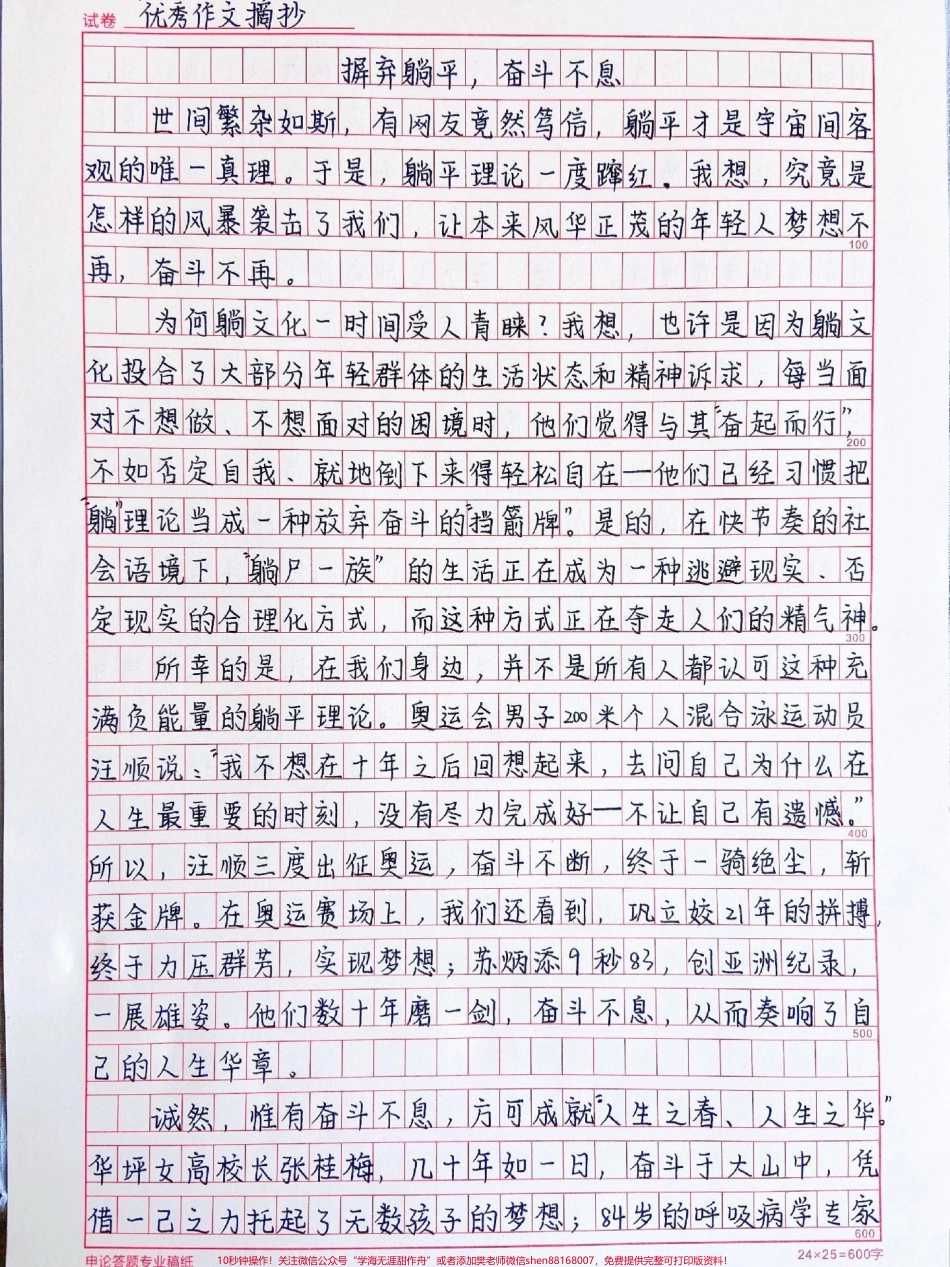 试卷 优秀作文摘抄
摒弃躺平，奋斗不息
世间繁杂如斯，有网友竟然笃信，躺平才是宇宙间客
观的唯一真理。于是，躺平理论一度蹿红。我想，究竟是
怎样的风暴袭击了我们，让本来风华正茂的年轻人梦想不
100
再，奋斗不再。
为何躺文化一时间受人青睐？我想，也许是因为躺文
化投合了大部分年轻群体的生活状态和精神诉求，每当面
对不想做、不想面对的困境时，他们觉得与其“奋起而行”，
200
不如否定自我、就地倒下来得轻松自在——他们已经习惯把
“躺”理论当成一种放弃奋斗的“挡箭牌”。是的，在快节奏的社
会语境下，“躺尸一族”的生活正在成为一种逃避现实、否
定现实的合理化方式，而这种方式正在夺走人们的精气神。
300
所幸的是，在我们身边，并不是所有人都认可这种充
满负能量的躺平理论。奥运会男子200米个人混合泳运动员
汪顺说：“我不想在十年之后回想起来，去问自己为什么在
人生最重要的时刻，没有尽力完成好——不让自己有遗憾。”
400
所以，汪顺三度出征奥运，奋斗不断，终于一骑绝尘，斩
获金牌。在奥运赛场上，我们还看到，巩立姣21年的拼搏，
终于力压群芳，实现梦想；苏炳添9秒83，创亚洲纪录，
一展雄姿。他们数十年磨一剑，奋斗不息，从而奏响了自
500
己的人生华章。
诚然，惟有奋斗不息，方可成就“人生之春、人生之华。”
华坪女高校长张桂梅，几十年如一日，奋斗于大山中，凭
借一己之力托起了无数孩子的梦想；84岁的呼吸病学专家
600
申论答题专业稿纸 10秒钟操作！关注微信公众号“学海无涯甜作舟”或者添加樊老师微信shen88168007，免费提供完整可打印版资料！ 24×25=600字